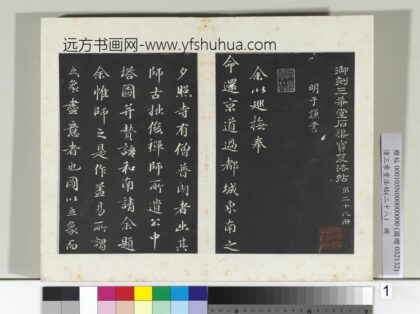 远方书画网-www.yfshuhua.com
御刻三希堂石渠寶笈法帖第二十八冊
明于謙書
余以巡撫奉
命還京道過都城東南之
夕照寺有僧普朗者出其
師古拙俊禪師所遺公中
塔圖并贊語和南請余題
余惟師之是作蓋易所謂
立象盡意者也因以立象而
清三希堂法帖(二十八) 冊
1